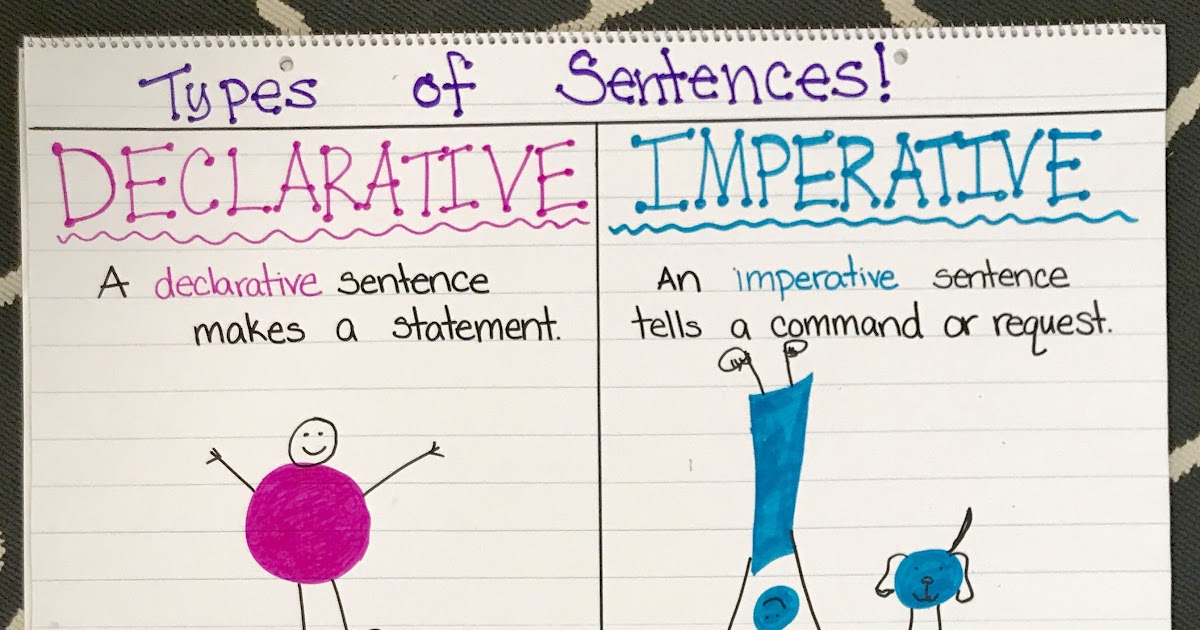 Types of Sentences!
DECLARATIVE
A declarative sentence
makes a statement.
IMPERATIVE
An imperative sentence
tells a command or request.